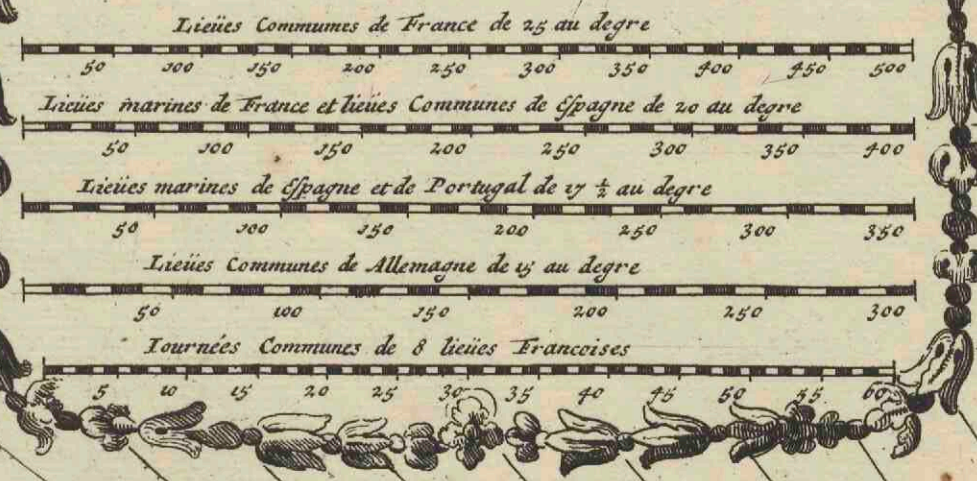 Lieües Commumes de France de 25 au degre
50 100 150 200 250 300 350 400 450 500
Lieües marines de France et lieües Communes de Espagne de 20 au degre
50 100 150 200 250 300 350 400
Lieües marines de Espagne et de Portugal de 17 ½ au degre
50 100 150 200 250 300 350
Lieües Communes de Allemagne de 15 au degre
50 100 150 200 250 300
Iournées Communes de 8 lieües Francoises
5 10 15 20 25 30 35 40 45 50 55 60